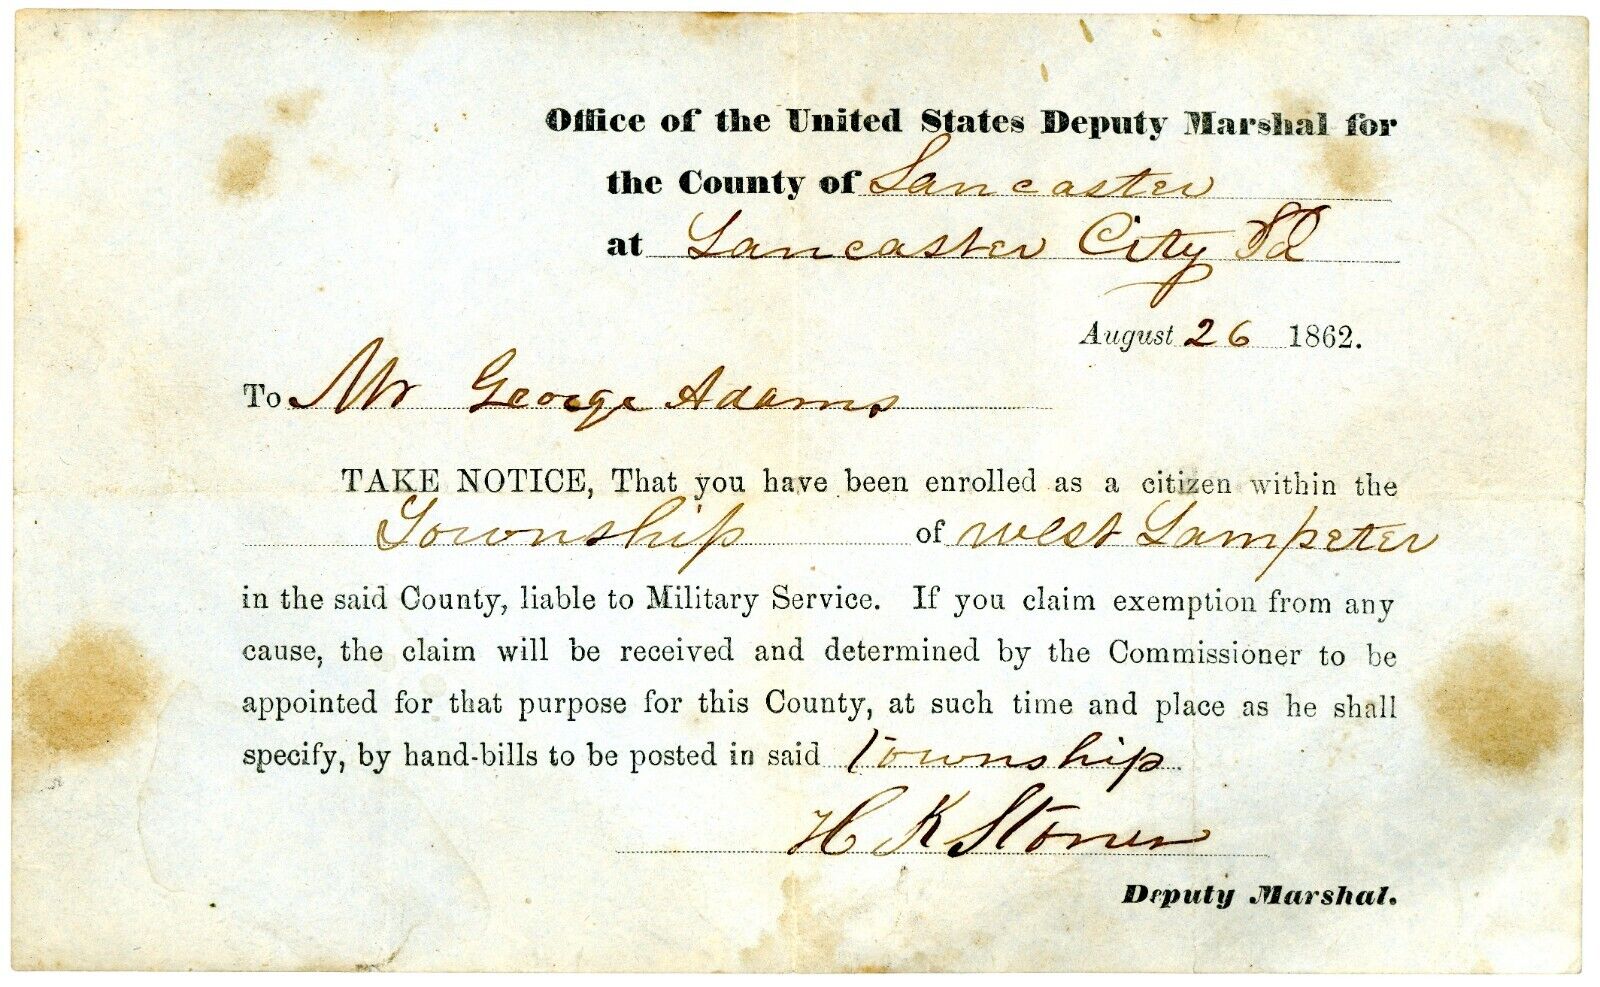 Office of the United States Deputy Marshal for
the County of Lancaster
at Lancaster City Pa
August 26 1862.
To Mr George Adams
TAKE NOTICE, That you have been enrolled as a citizen within the
Township of West Lampeter
in the said County, liable to Military Service. If you claim exemption from any
cause, the claim will be received and determined by the Commissioner to be
appointed for that purpose for this County, at such time and place as he shall
specify, by hand-bills to be posted in said Township
H K Stoner
Deputy Marshal.